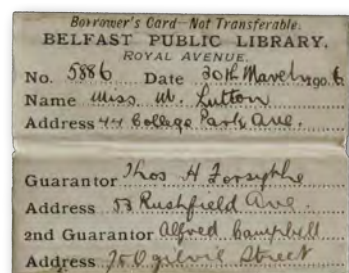 Borrower's Card—Not Transferable.
BELFAST PUBLIC LIBRARY.
ROYAL AVENUE.
No. 5886 Date 30th March 1906
Name Miss M. Lutton
Address 44 College Park Ave.
Guarantor Thos H Forsythe
Address 53 Rushfield Ave.
2nd Guarantor Alfred Campbell
Address 75 Ogilvie Street